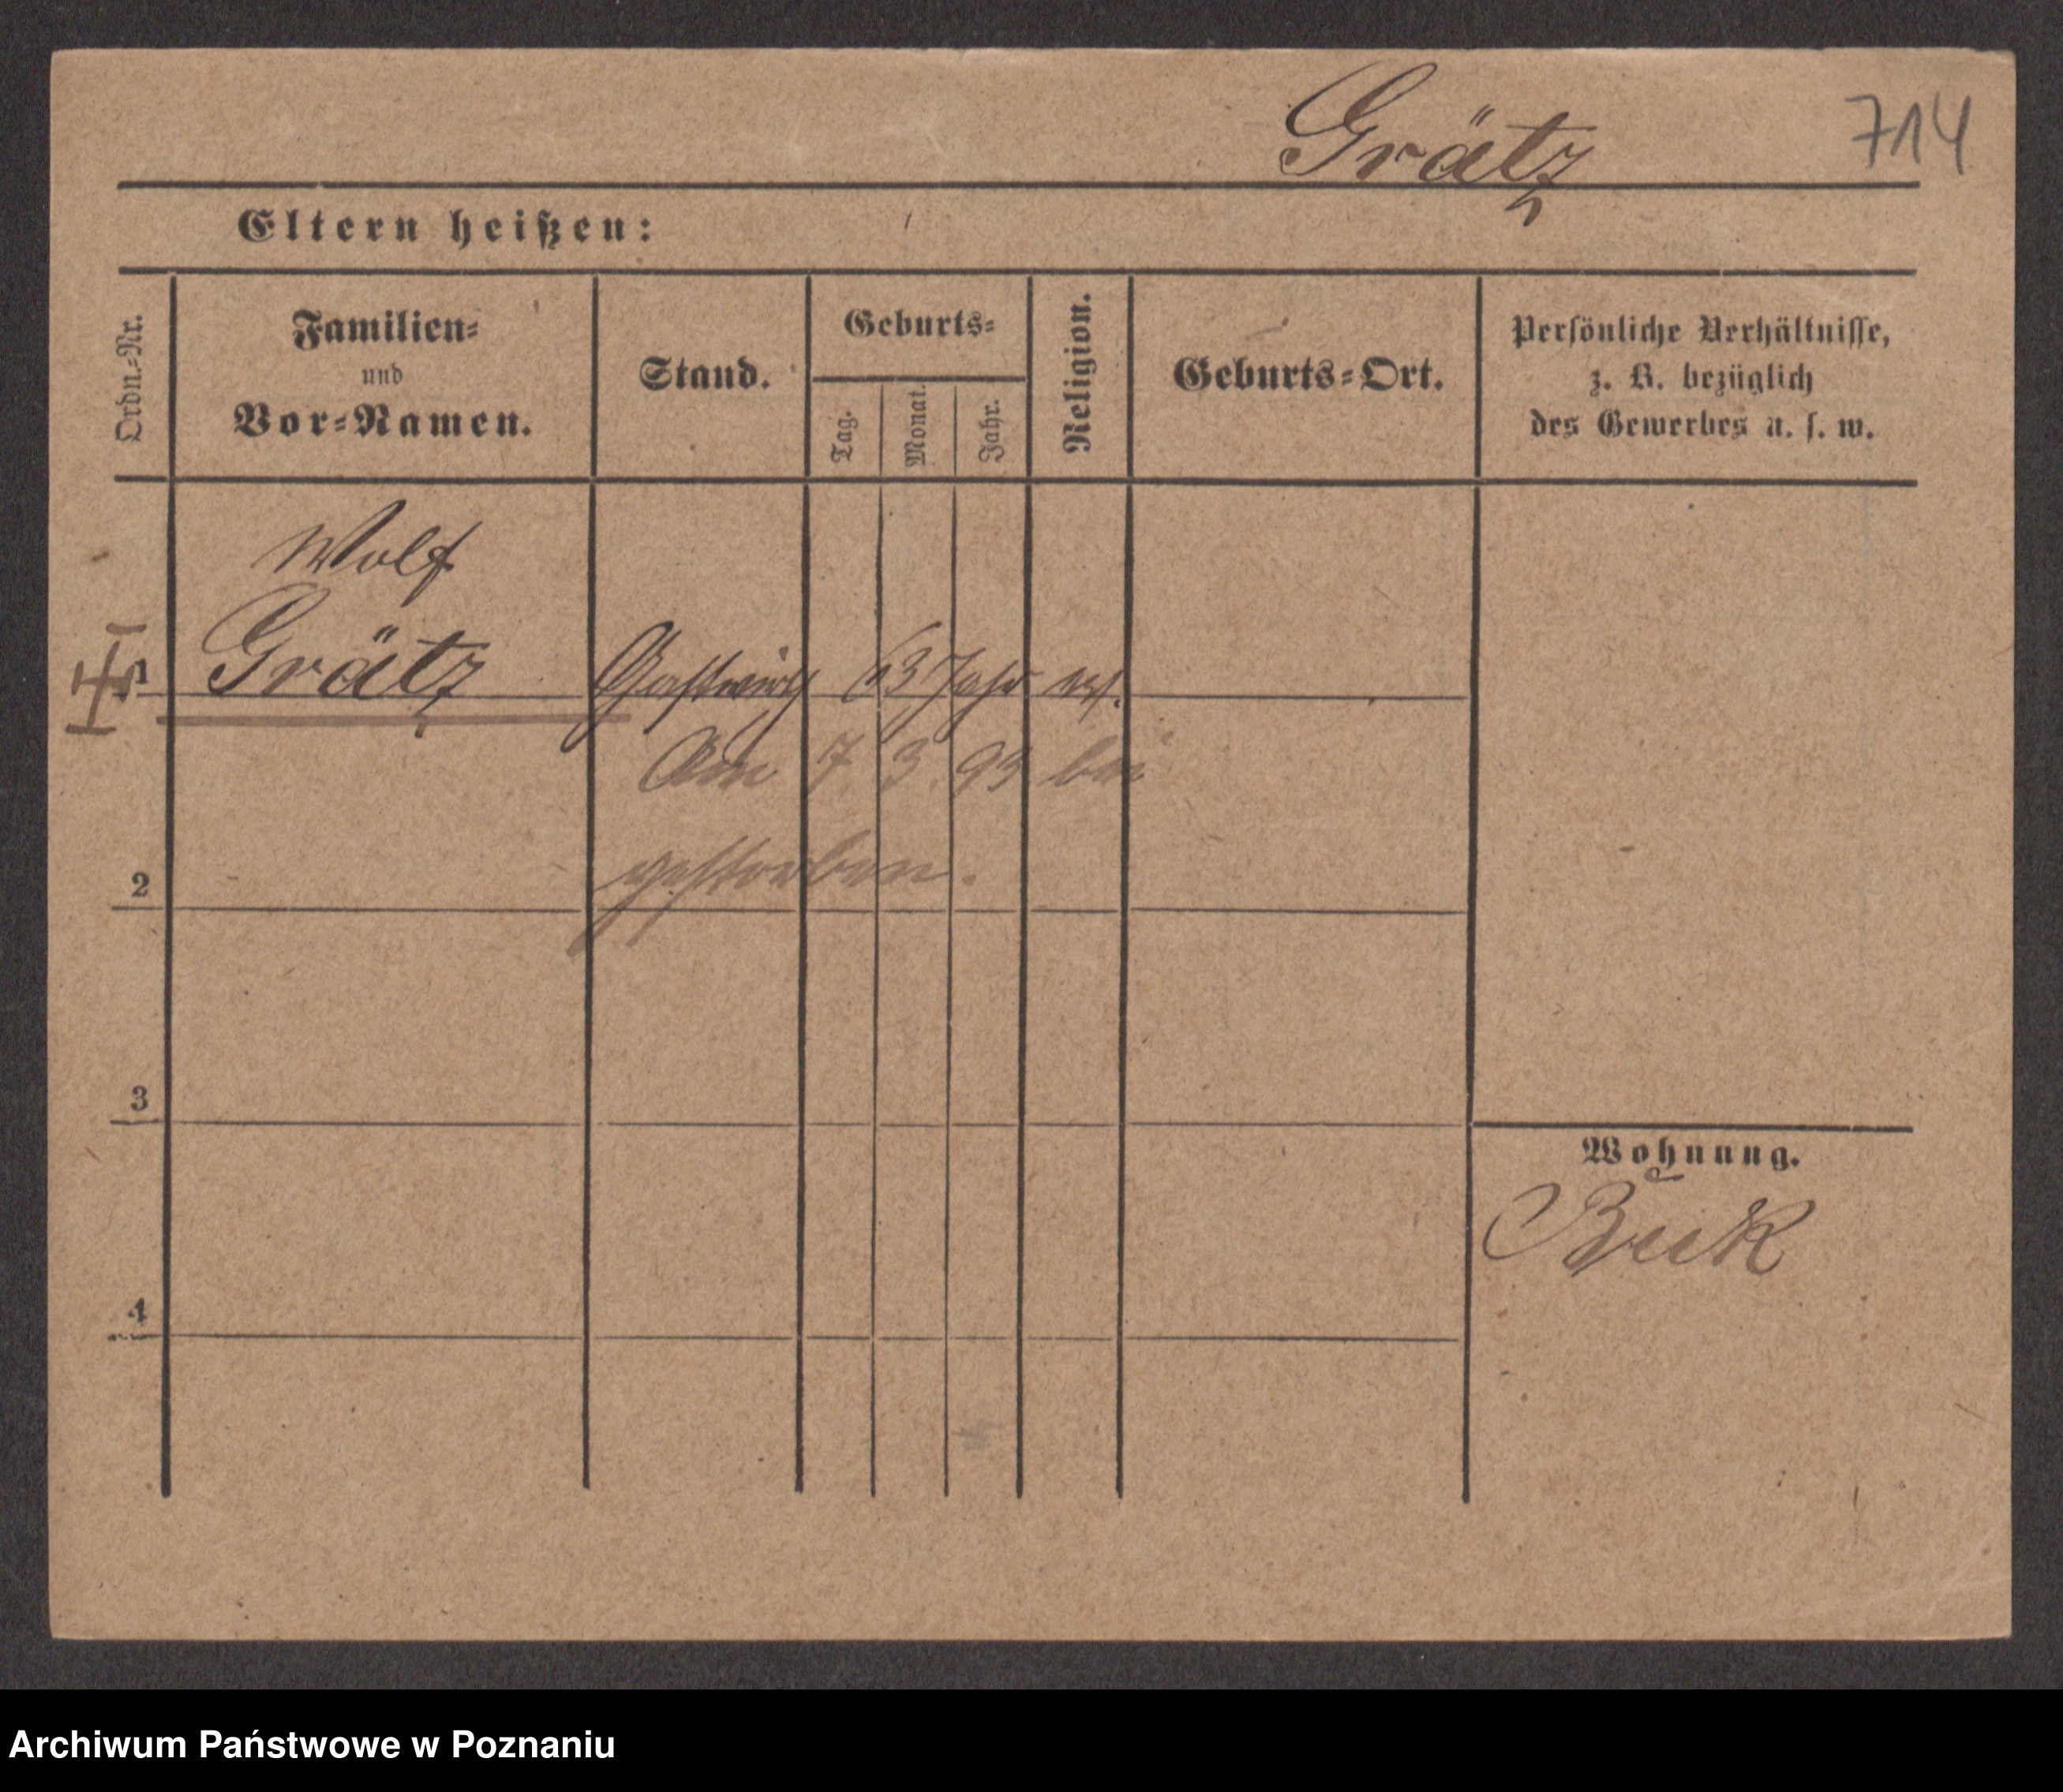 Grätz
714
Eltern heißen:
Ordn.-Nr.
Familien-
und
Vor-Namen.
Stand.
Geburts-
Tag.
Monat.
Jahr.
Religion.
Geburts-Ort.
Persönliche Verhältnisse,
z. B. bezüglich
des Gewerbes u. s. w.
Wolf
1 Grätz Gastwirth 63 Jahr
Am 7. 3. 93
gestorben.
2
3
Wohnung.
Buk
4
Archiwum Państwowe w Poznaniu